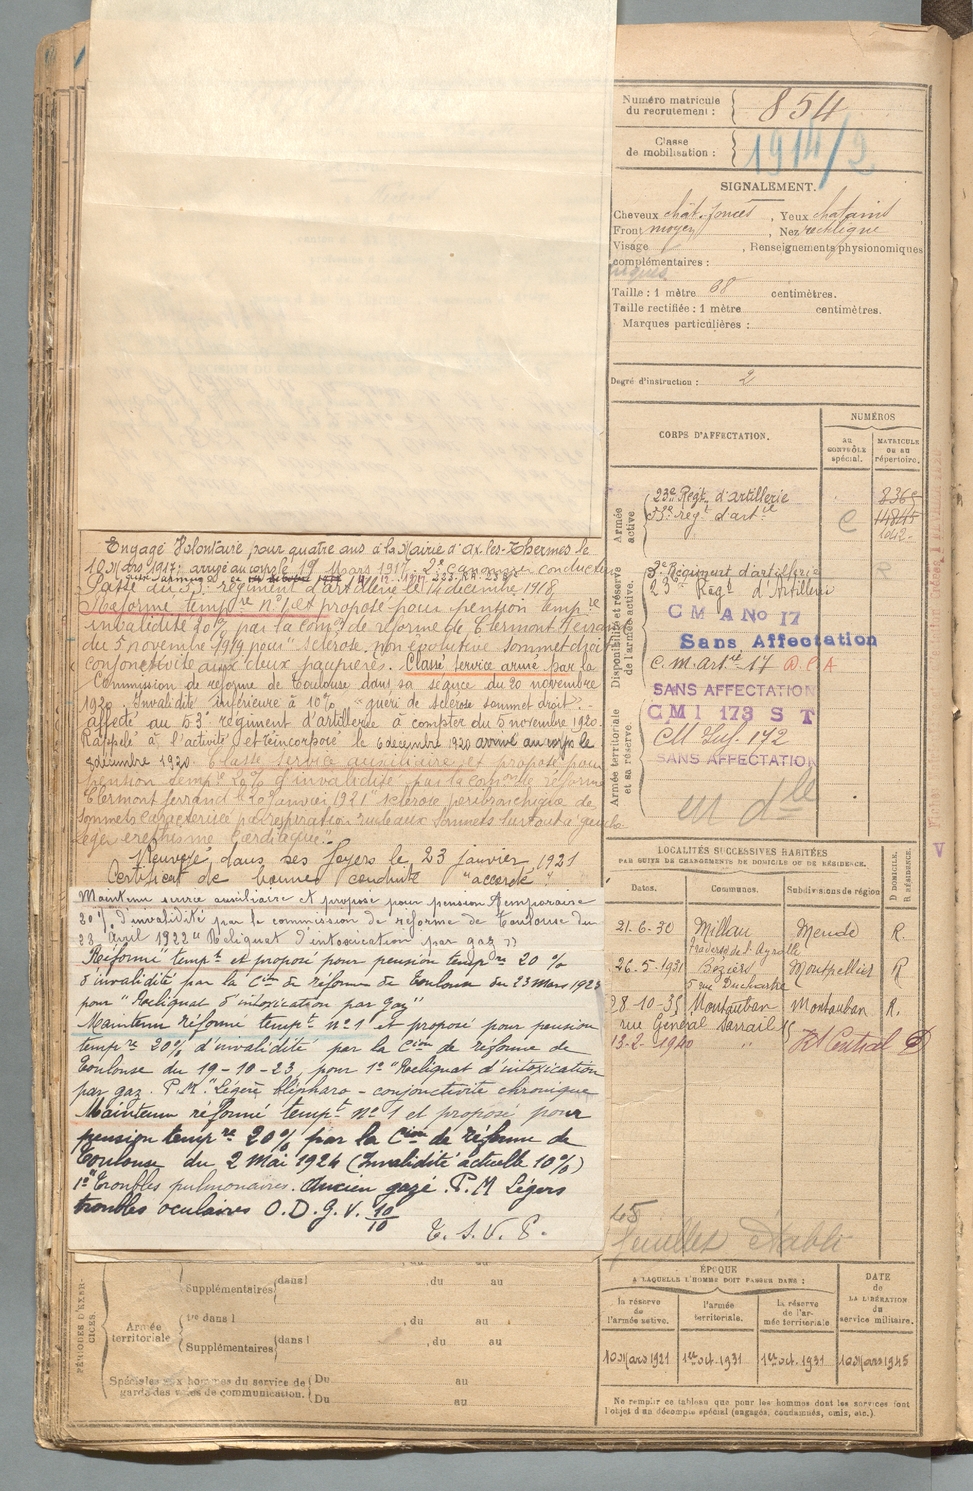 Numéro matricule
du recrutement : 854
Classe
de mobilisation : 1914/2
SIGNALEMENT.
Cheveux chât. foncés, Yeux chatains
Front moyen, Nez rectiligne
Visage , Renseignements physionomiques
complémentaires :
Taille : 1 mètre 68 centimètres.
Taille rectifiée : 1 mètre centimètres.
Marques particulières :
Degré d'instruction : 2
CORPS D'AFFECTATION.
NUMÉROS
AU CONTRÔLE spécial.
MATRICULE OU AU répertoire.
Armée active
23e Regt. d'artillerie
53e reg t d'art ie
C
1042
Disponibilité et réserve de l'armée active.
3e Régiment d'artillerie
23 Regt d'Artillerie
C M A No 17
Sans Affectation
C. m. art re 17 D. C A
SANS AFFECTATION
Armée territoriale et sa réserve.
C M I 173 S T
CM Inf. 172
SANS AFFECTATION
un dle
Engagé Volontaire pour quatre ans à la Mairie d'ax-les-Thermes le
10 Mars 1917; arrivé au corps le 19 Mars 1917. 2e canonnier conducteur
Passé au 53e régiment d'artillerie le 14 décembre 1918
Réformé tempre n°1 et proposé pour pension tempre
invalidité 20% par la comon de réforme de Clermont Ferrand
du 5 novembre 1919 pour "sclérose non évolutive sommet droit
conjonctivite aux deux paupières. Classé Service armé par la
Commission de réforme de Toulouse dans sa séance du 20 novembre
1920. Invalidité inférieure à 10% "guéri de sclérose sommet droit".
affecté au 53e régiment d'artillerie à compter du 5 novembre 1920.
Rappelé à l'activité et réincorporé le 6 décembre 1920 arrivé au corps le
8 décembre 1920. Classé service auxiliaire et proposé pour
pension temp. 20% d'invalidité par la comon de réforme
Clermont ferrand le 20 Janvier 1921 "sclérose péribronchique des
sommets caractérisé par respiration rude aux sommets surtout à gauche
léger eréthisme Cardiaque".
Renvoyé dans ses foyers le 23 janvier 1921
Certificat de bonne conduite "accordé".
Maintenu service auxiliaire et proposé pour pension temporaire
20% d'invalidité par la commission de réforme de Toulouse du
28 Avril 1922 "Reliquat d'intoxication par gaz"
Réformé tempt et proposé pour pension tempre 20%
d'invalidité par la Cion de réforme de Toulouse du 23 mars 1923
pour "Reliquat d'intoxication par gaz"
Maintenu réformé tempt n°1 et proposé pour pension
tempre 20% d'invalidité par la Cion de réforme de
Toulouse du 19-10-23, pour 1° Reliquat d'intoxication
par gaz. P.M. Légère blépharo-conjonctivite chronique
Maintenu réformé tempt n°1 et proposé pour
pension tempre 20% par la Cion de réforme de
Toulouse du 2 Mai 1924 (Invalidité actuelle 10%)
1° Troubles pulmonaires. Ancien gazé. P.M Légers
troubles oculaires O.D.G.V. 10/10
T. S. V. P.
LOCALITÉS SUCCESSIVES HABITÉES
PAR SUITE DE CHANGEMENTS DE DOMICILE OU DE RÉSIDENCE.
Dates. Communes. Subdivisions de région D DOMICILE. R RÉSIDENCE.
21.6-30 Millau Mende R.
26.5-1931 Beziers Montpellier R
5 rue Duchartre
28-10-35 Montauban Montauban R.
rue Général Sarrail
13-2-1940 " Rt Central D
45
feuillet établi
ÉPOQUE
A LAQUELLE L'HOMME DOIT PASSER DANS :
la réserve de l'armée active.
l'armée territoriale.
la réserve de l'armée territoriale
DATE de LA LIBÉRATION du service militaire.
10 Mars 1921 1er oct. 1931 1er oct. 1931 10 Mars 1945
Ne remplir ce tableau que pour les hommes dont les services font
l'objet d'un décompte spécial (engagés, condamnés, omis, etc.).
PÉRIODES D'EXERCICES.
Armée territoriale
Supplémentaires dans l , du au
1re dans l , du au
Supplémentaires dans l , du au
Spéciales aux hommes du service de
garde des voies de communication.
Du au
Du au